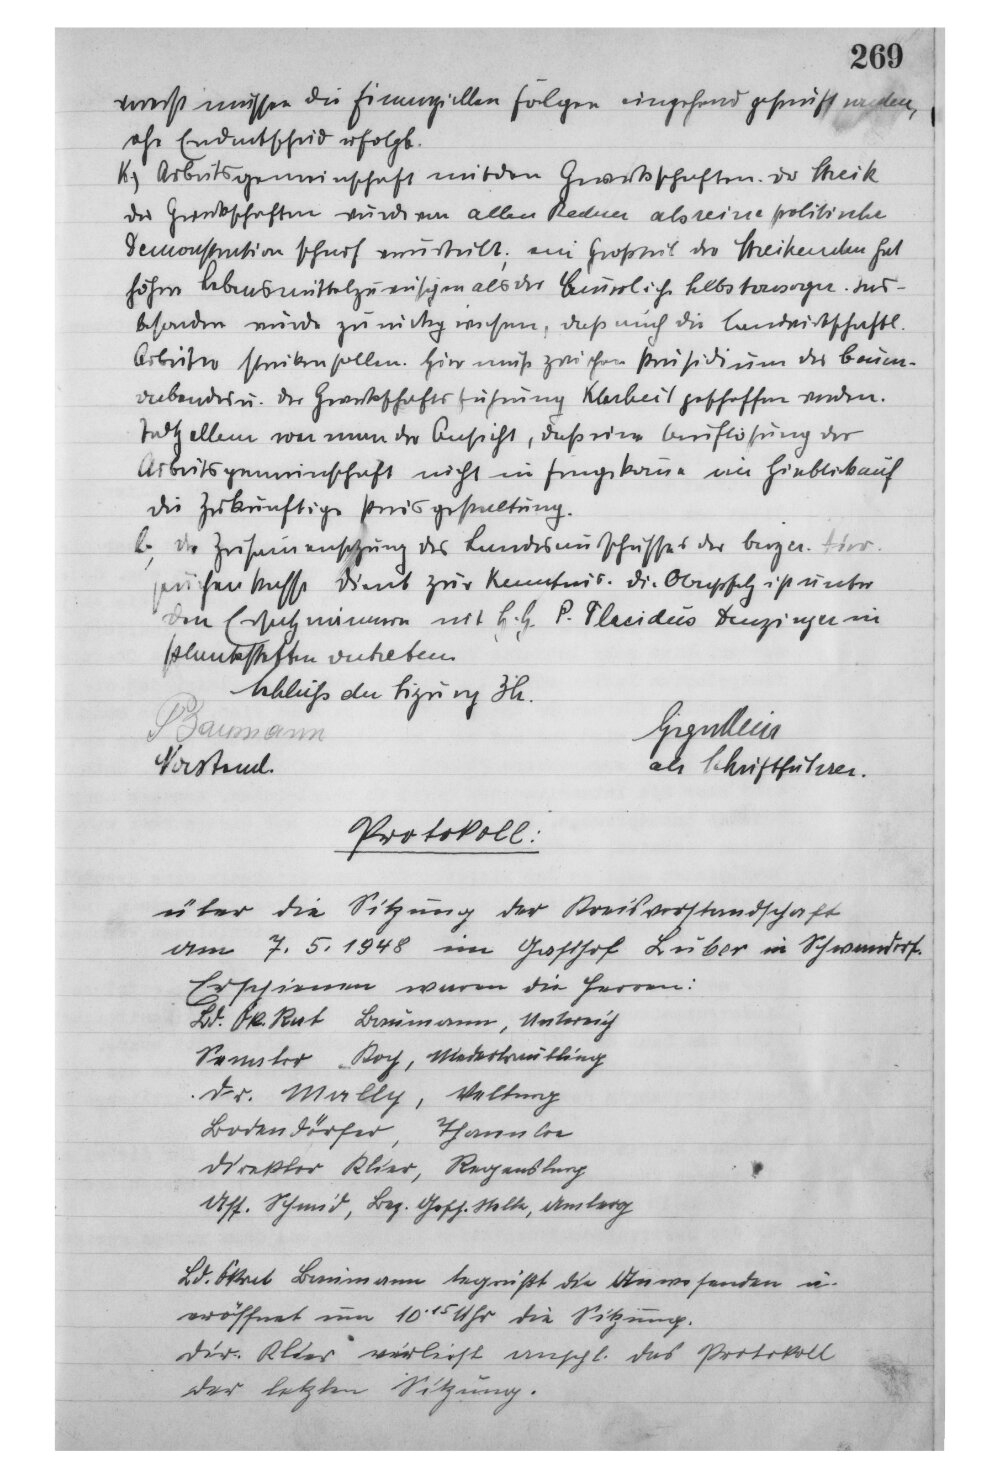 269
müssen die finanziellen Folgen eingehend geprüft werden,
ehe Endentscheid erfolgt.
k) Arbeitsgemeinschaft mit den Gewerkschaften. Der Streik
der Gewerkschaften wurde von allen Redner als reine politische
Demonstration scharf verurteilt; ein Großteil der Streikenden hat
höhere Lebensmittelzuweisungen als der bäuerliche Selbstversorger. Ins-
besondere wurde zurückgewiesen, daß auch die landwirtschaftl.
Arbeiter streiken sollen. Hier muß zwischen Präsidium des Bauern-
verbandes u. der Gewerkschaftsführung Klarheit geschaffen werden.
Trotz allem war man der Ansicht, daß eine Auflösung der
Arbeitsgemeinschaft nicht in Frage komme im Hinblick auf
die zukünftige Preisgestaltung.
l) die Zusammensetzung des Landesausschusses der bayer. Tier-
seuchenkasse dient zur Kenntnis. Die Oberpfalz ist unter
den Ersatzmännern mit H. H. P. Placidus in
Plankstetten vertreten.
Schluß der Sitzung 3h.
Baumann
Vorstand. als Schriftführer.
Protokoll:
über die Sitzung der Kreisvorstandschaft
am 7. 5. 1948 im Gasthof Luber in Schwandorf.
Erschienen waren die Herren:
Ld. Ök. Rat Baumann,
Senator Koch, Niedertraubling
Dr. Mally,
Bodendörfer, Thannloe
Direktor Klier, Regensburg
Ass. Schmid, Bez. Gesch. Stelle, Amberg
Ld. Ökrat Baumann begrüßt die Anwesenden u.
eröffnet um 10.15 Uhr die Sitzung.
Dir. Klier verliest anschl. das Protokoll
der letzten Sitzung.